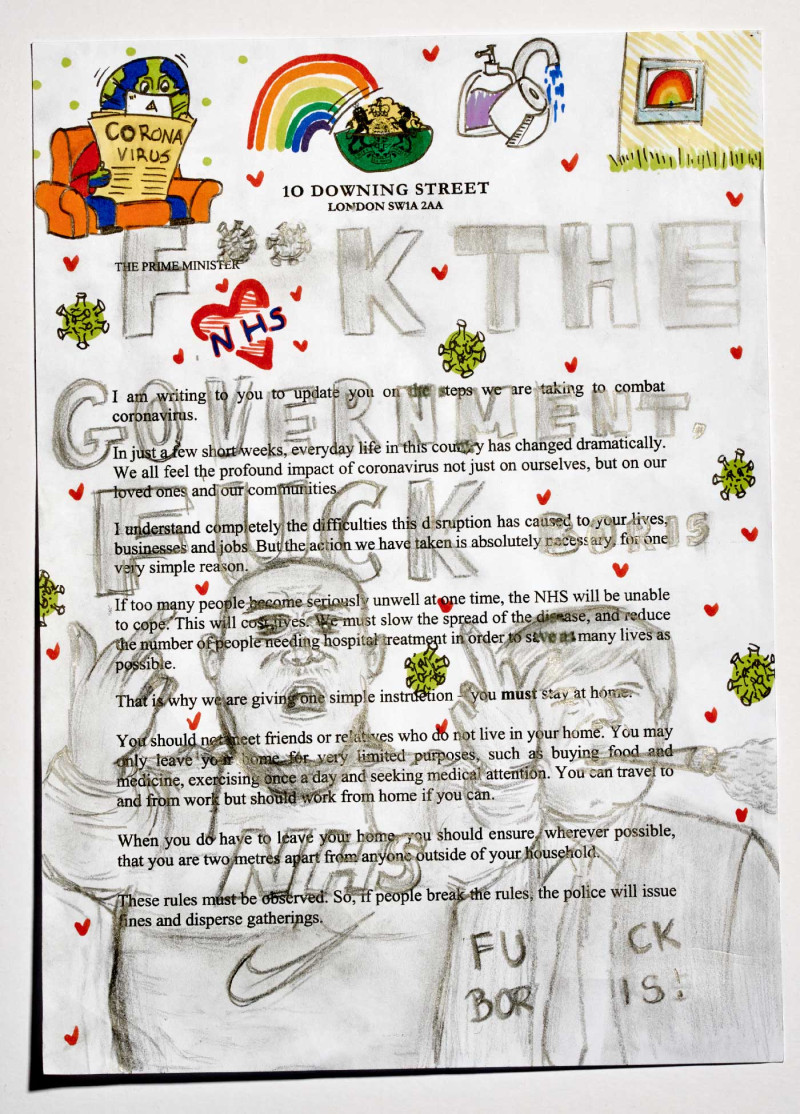 CORONA
VIRUS
10 DOWNING STREET
LONDON SW1A 2AA
F**K THE
THE PRIME MINISTER
NHS
GOVERNMENT,
I am writing to you to update you on the steps we are taking to combat
coronavirus.
In just a few short weeks, everyday life in this country has changed dramatically.
We all feel the profound impact of coronavirus not just on ourselves, but on our
loved ones and our communities
FUCK BORIS
I understand completely the difficulties this d sruption has caused to your lives,
businesses and jobs. But the action we have taken is absolutely necessary, for one
very simple reason.
If too many people become seriously unwell at one time, the NHS will be unable
to cope. This will cost lives. We must slow the spread of the disease, and reduce
the number of people needing hospital treatment in order to save as many lives as
possible.
That is why we are giving one simple instruction – you must stay at home.
You should not meet friends or relatives who do not live in your home. You may
only leave your home for very limited purposes, such as buying food and
medicine, exercising once a day and seeking medical attention. You can travel to
and from work but should work from home if you can.
When you do have to leave your home, you should ensure, wherever possible,
that you are two metres apart from anyone outside of your household.
NHS
These rules must be observed. So, if people break the rules, the police will issue
fines and disperse gatherings.
FU CK
BOR IS!